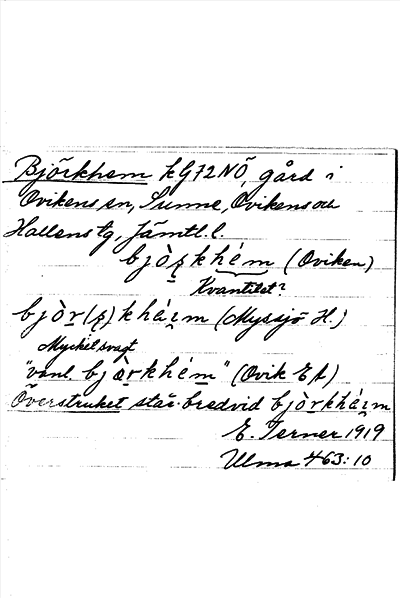 Björkhem kG72NÖ, gård i
Ovikens sn, Sunne, Ovikens och
Hallens tg, Jämtl. l.
bjòʐkhém (Oviken)
Kvantitet?
bjòr(ʐ)kháım (Myssjö H.)
Mycket svagt
"vanl. bjòrkhém" (Ovik EA)
Överstruket står bredvid bjòrkháım
E. Terner 1919
Ulma 463:10